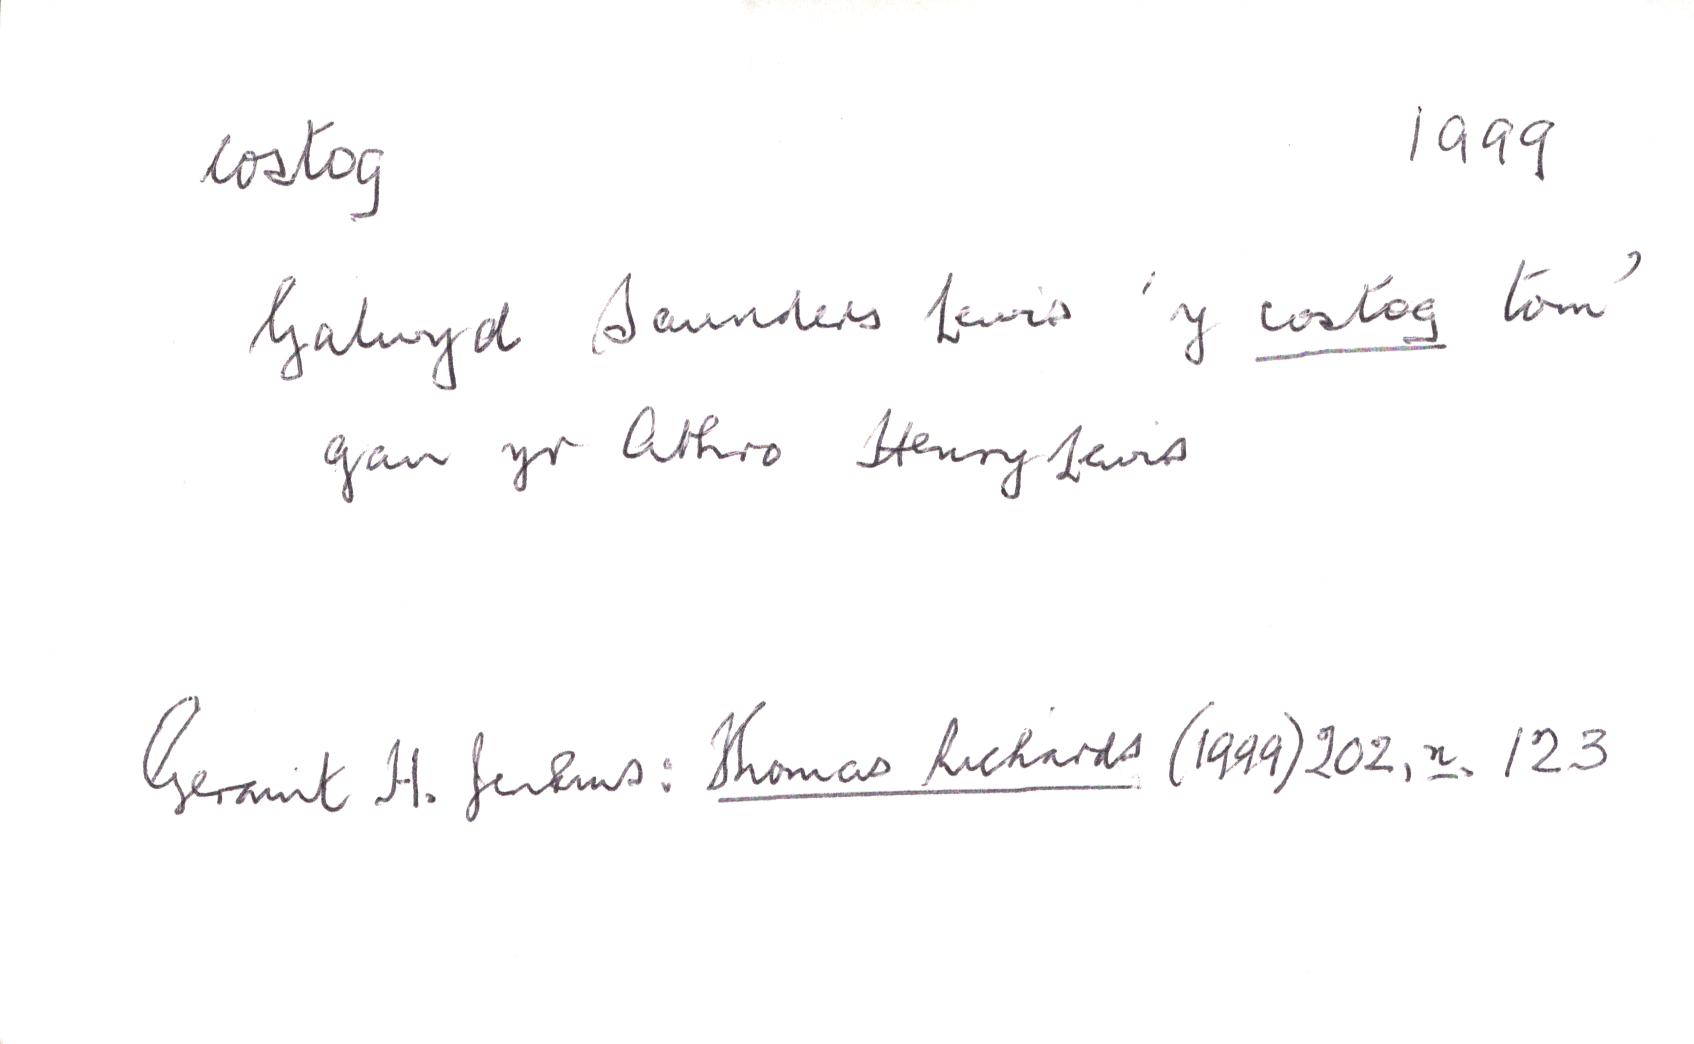 costog 1999
Galwyd Saunders Lewis 'y costog tom'
gan yr Athro Henry Lewis
Geraint H. Jenkins: Thomas Richards (1999) 202, n. 123